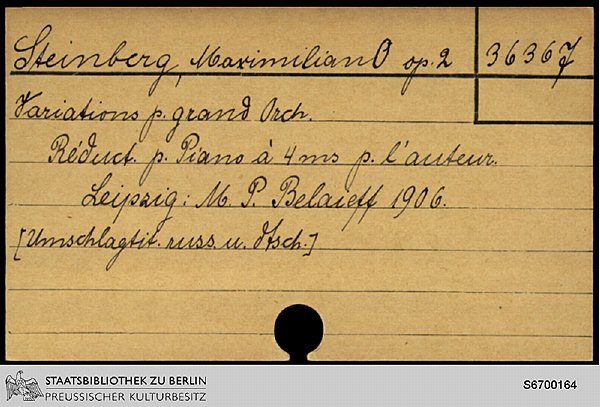 Steinberg, Maximilian O op. 2 36367
Variations p. grand Orch.
Réduct. p. Piano à 4 ms p. l'auteur.
Leipzig: M. P. Belaieff 1906.
[Umschlagtit. russ. u. dtsch.]
STAATSBIBLIOTHEK ZU BERLIN
PREUSSISCHER KULTURBESITZ
S6700164